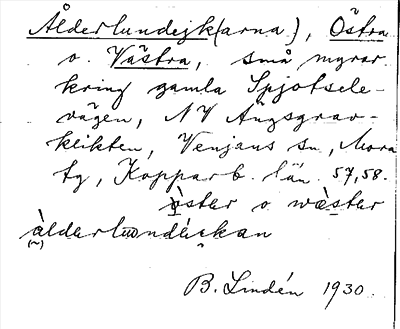 Ålderlundejk(arna), Östra
o. Västra, små myrar
kring gamla Spjotsele-
vägen, NV Ängsgrav-
klikten, Venjans sn, Mora
tg, Kopparb. län. 57,58.
òster o. wèster
àlderlωndékan
(~)
B. Lindén 1930.